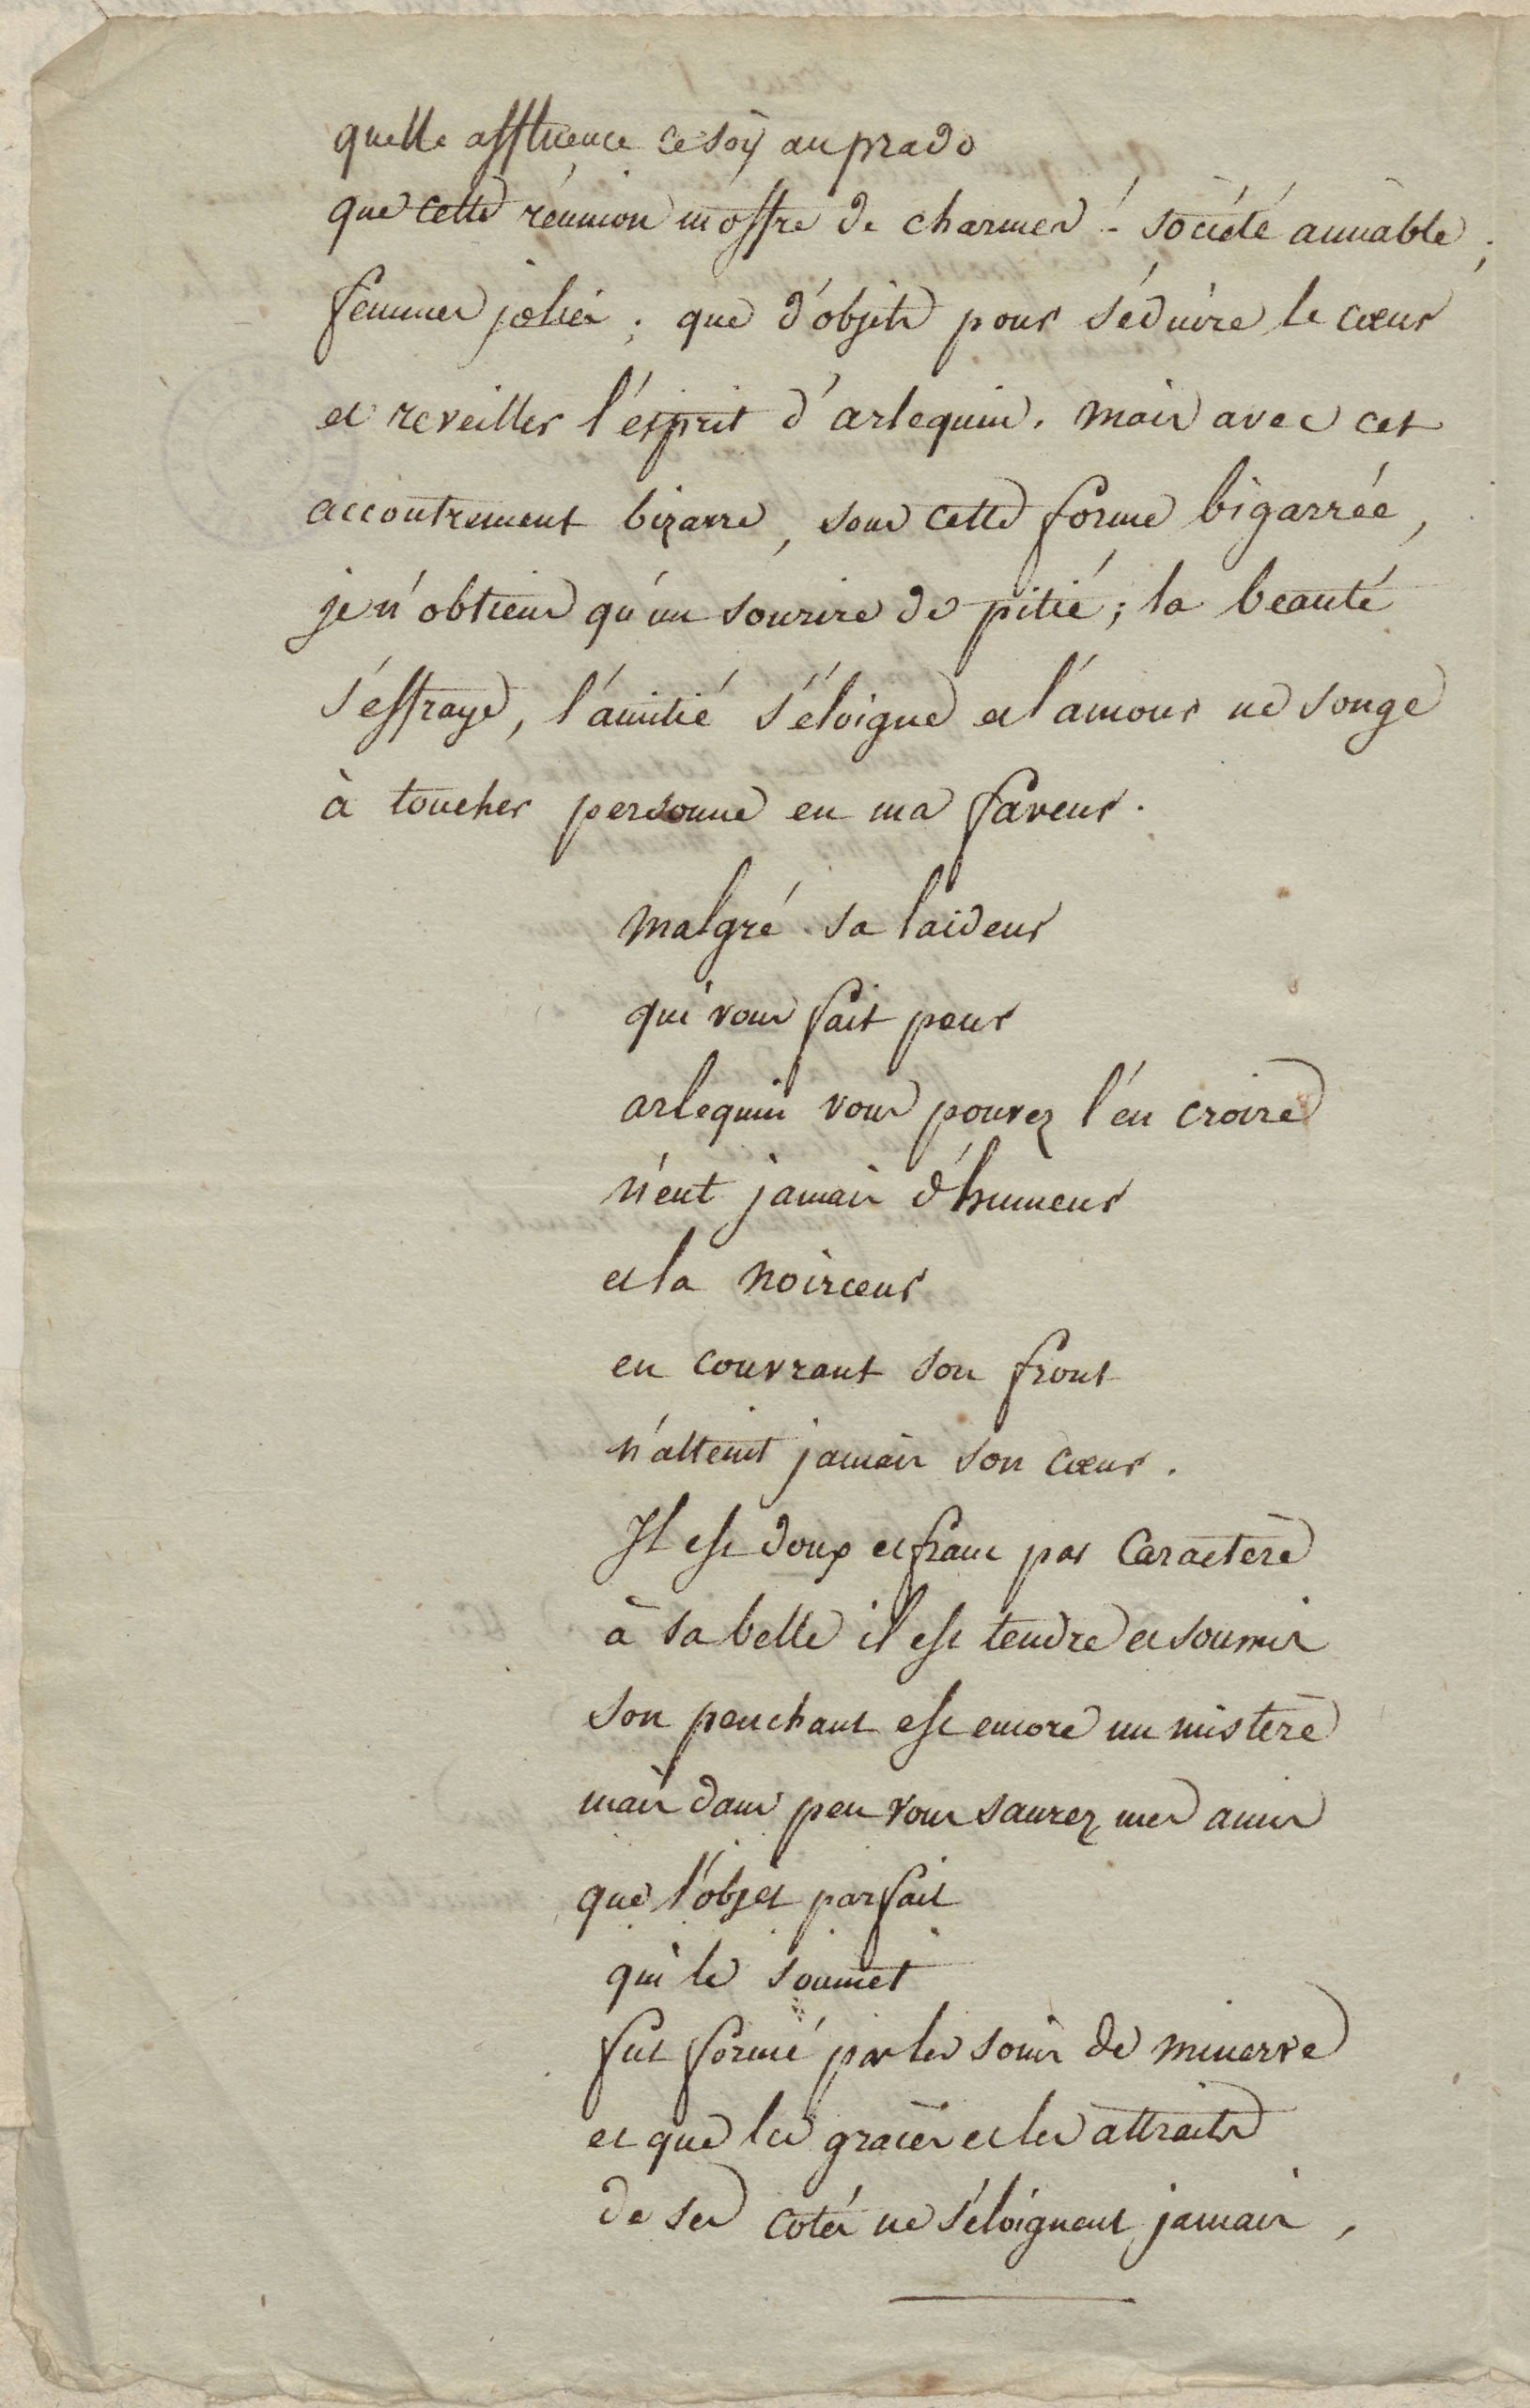 quelle affluence ce soir au prado
que cette réunion m'offre de charmes ! société aimable ;
femmes jolies ; que d'objets pour séduire le cœur
et reveiller l'esprit d'arlequin. mais avec cet
accoutrement bizarre, sous cette forme bigarrée,
je n'obtiens qu'un sourire de pitié ; la beauté
s'effraye, l'amitié s'éloigne et l'amour ne songe
à toucher personne en ma faveur.
malgré sa laideur
qui vous fait peur
arlequin vous pouvez l'en croire
n'eut jamais d'humeur
et la noirceur
en couvrant son front
n'atteint jamais son cœur.
Il est doux et franc par Caractère
à sa belle il est tendre et soumis
son penchant est encore un mistère
mais dans peu vous saurez mes amis
que l'objet parfait
qui le soumet
fut formé par les soins de minerve
et que les graces et les attraits
de ses cotés ne s'éloignent jamais,